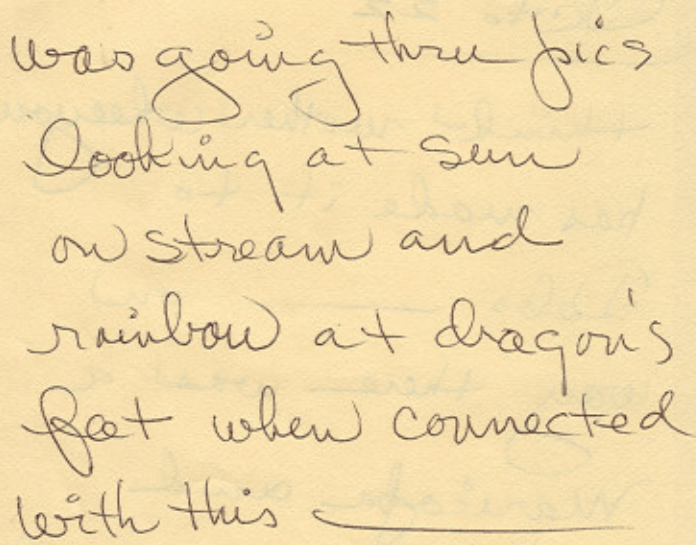 was going thru pics
looking at sun
on stream and
rainbow at dragon's
feet when connected
with this